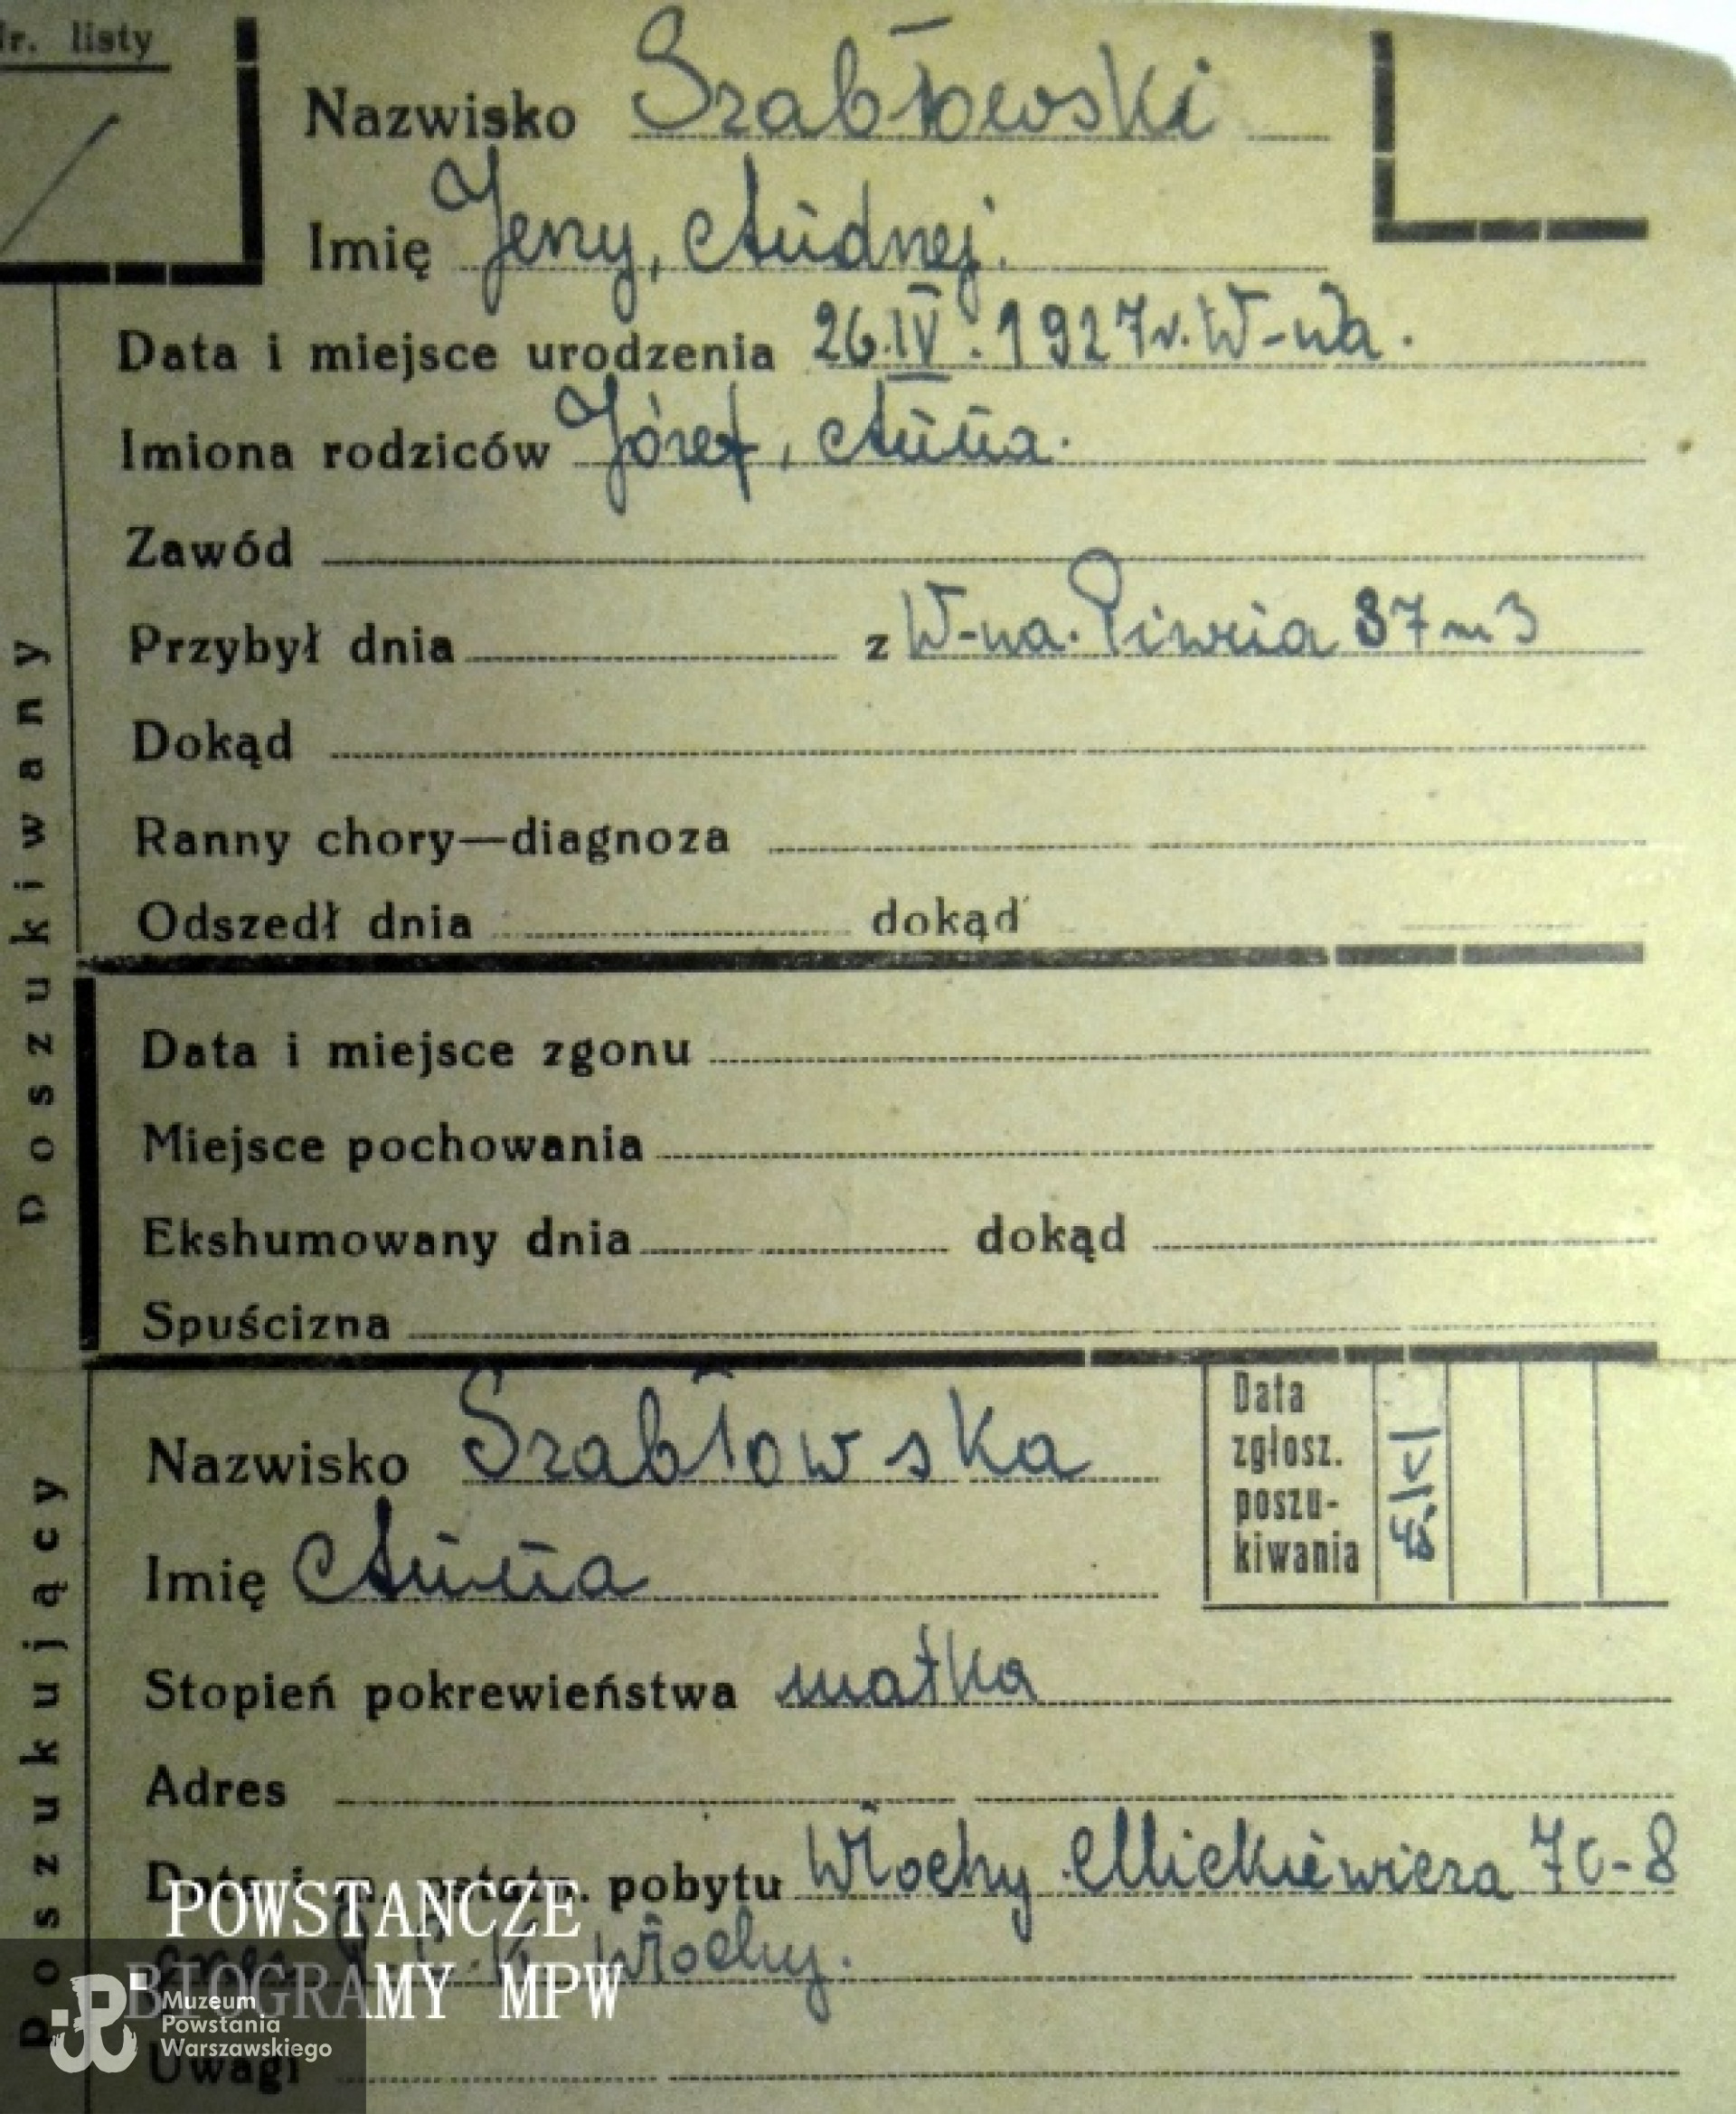 Nr. listy
Nazwisko Szabłowski
Imię Jerzy, Andrzej.
Data i miejsce urodzenia 26.IV.1927r. W-wa.
Imiona rodziców Józef, Anna.
Zawód
Przybył dnia z W-wa. Piwna 37 m 3
Dokąd
Ranny chory—diagnoza
Odszedł dnia dokąd
Data i miejsce zgonu
Miejsce pochowania
Ekshumowany dnia dokąd
Spuścizna
Poszukiwany
Nazwisko Szabłowska
Imię Anna
Data zgłosz. poszu-
kiwania
Stopień pokrewieństwa matka
Adres
Data i m. ostatn. pobytu Włochy Mickiewicza 70-8
Włochy.
Uwagi
Poszukujący
POWSTAŃCZE
BIOGRAMY MPW
Muzeum
Powstania
Warszawskiego